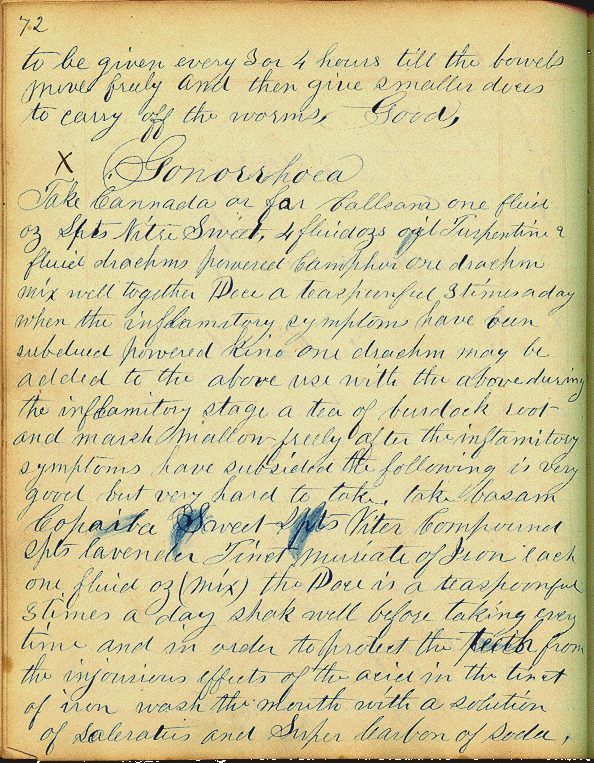 72
to be given every 3 or 4 hours till the bowels
move freely and then give smaller doces
to carry off the worms, Good,
X Gonorrhoea
Take Cannada or far Ballsam one fluid
oz Spts Nitre Sweet, 4 fluid ozs oil Turpentine 2
fluid drachms powered Camphor one drachm
mix well together Doce a teaspoonful 3 times a day
when the inflamitory symptoms have been
subdued powered Kino one drachm may be
added to the above use with the above during
the inflamitory stage a tea of burdock root
and marsh mallow freely after the inflamitory
symptoms have subsided the following is very
good but very hard to take, take basam
Copaiba Sweet Spts Niter Compound
Spts lavender Tinct muriate of Iron each
one fluid oz (mix) the Doce is a teaspoonful
3 times a day shak well before taking every
time and in order to protect the teeth from
the injourious effects of the acid in the tinct
of iron wash the mouth with a solution
of saleratus and Super Carbon of Soda,